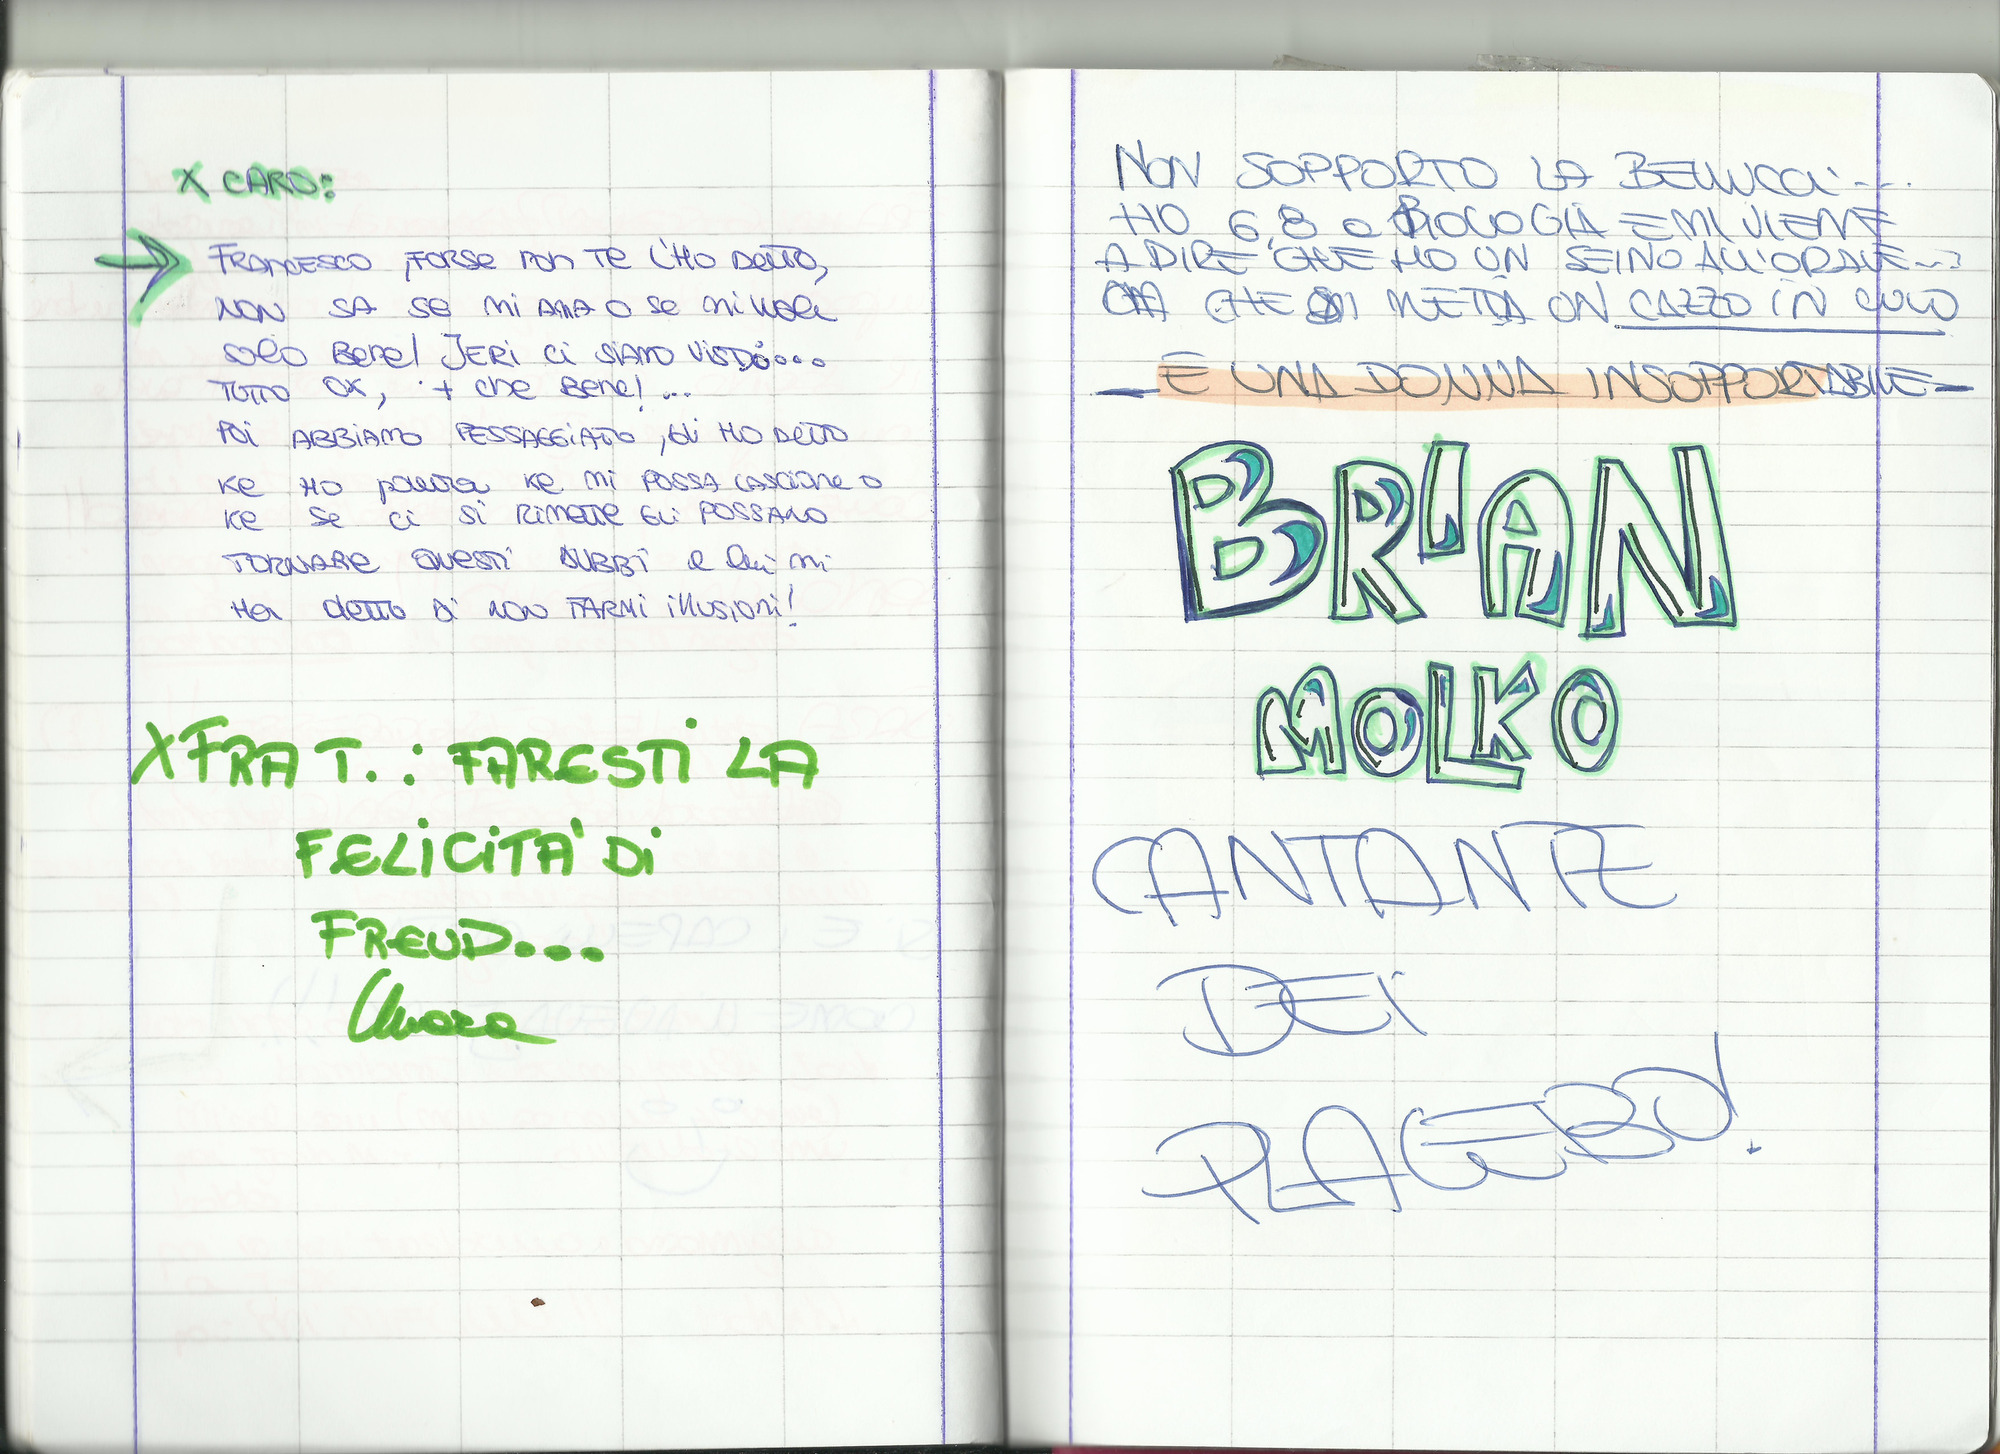 X CARO:
FRANCESCO, FORSE NON TE L'HO DETTO,
NON SA SE MI AMA O SE MI VUOLE
SOLO BENE! IERI CI SIAMO VISTI....
TUTTO OK, + CHE BENE!...
POI ABBIAMO PESSAGGIATO, GLI HO DETTO
KE HO PAURA KE MI POSSA LASCIARE O
KE SE CI SI RIMETTE GLI POSSANO
TORNARE QUESTI DUBBI E LUI MI
HA DETTO DI NON FARMI ILLUSIONI!
X FRA T. : FARESTI LA
FELICITA' DI
FREUD...
NON SOPPORTO LA BELLUCCI....
HO 6,8 A BIOLOGIA E MI VIENE
A DIRE CHE HO UN SEINO ALL'ORALE...
MA CHE SI METTA UN CAZZO IN CULO
È UNA DONNA INSOPPORTABILE
BRIAN
MOLKO
CANTANTE
DEI
PLACEBO!